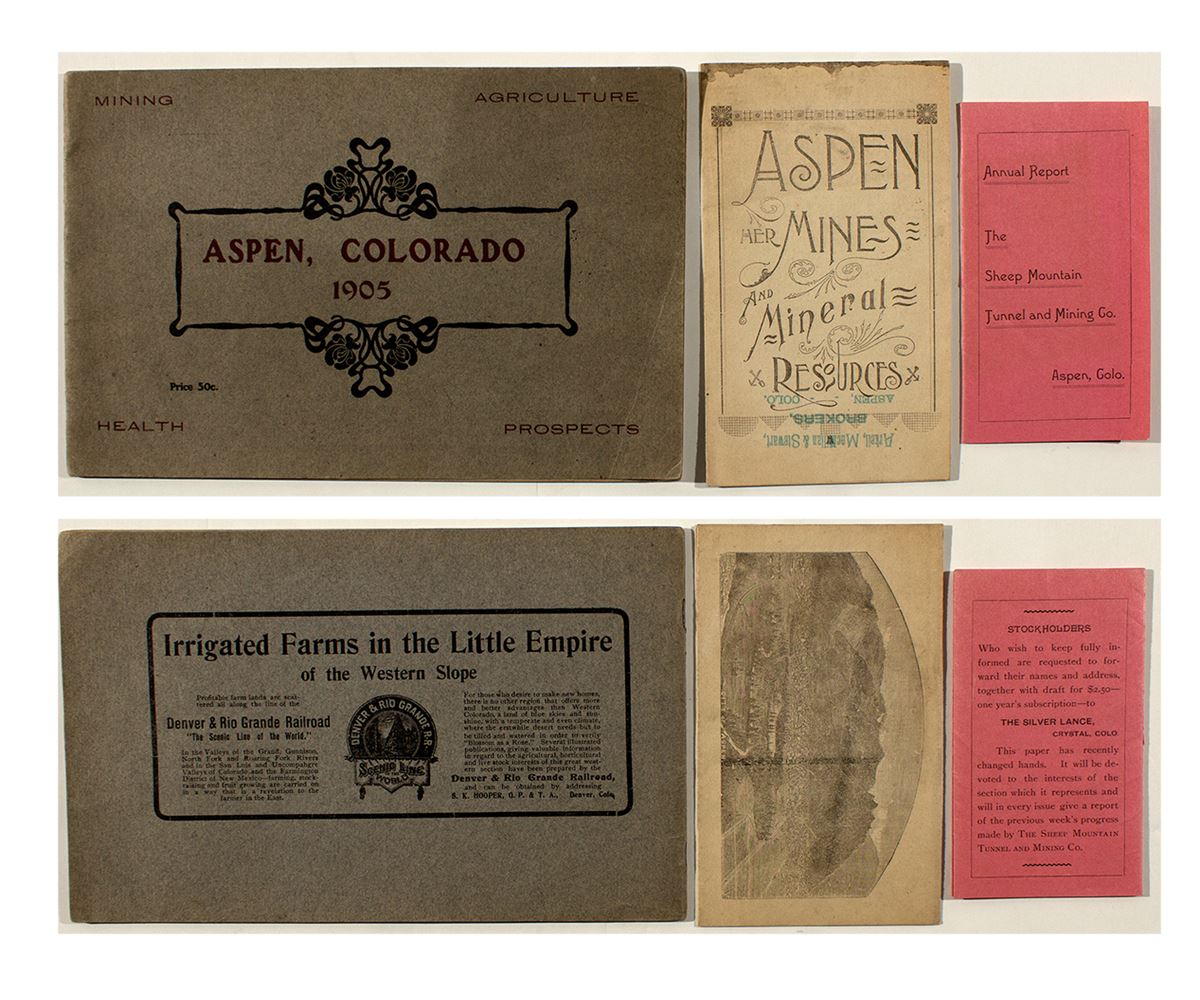 MINING
AGRICULTURE
ASPEN, COLORADO
1905
Price 50c.
HEALTH
PROSPECTS
ASPEN
HER MINES
AND
Mineral
RESOURCES
ASPEN, - - COLO.
BROKERS,
& Stewart,
Annual Report
The
Sheep Mountain
Tunnel and Mining Co.
Aspen, Colo.
Irrigated Farms in the Little Empire
of the Western Slope
Profitable farm lands are scat-
tered all along the line of the
Denver & Rio Grande Railroad
"The Scenic Line of the World."
In the Valleys of the Grand, Gunnison,
North Fork and Roaring Fork Rivers
and in the San Luis and Uncompahgre
Valleys of Colorado and the Farmington
District of New Mexico—farming, stock-
raising and fruit growing are carried on
in a way that is a revelation to the
farmer in the East.
DENVER & RIO GRANDE R.R.
SCENIC LINE
OF THE
WORLD
For those who desire to make new homes,
there is no other region that offers more
and better advantages than Western
Colorado, a land of blue skies and sun-
shine, with a temperate and even climate,
where the erstwhile desert needs but to
be tilled and watered in order to verily
"Blossom as a Rose." Several illustrated
publications, giving valuable information
in regard to the agricultural, horticultural
and live stock interests of this great west-
ern section have been prepared by the
Denver & Rio Grande Railroad,
and can be obtained by addressing
S. K. HOOPER, G. P. & T. A., Denver, Colo.
STOCKHOLDERS
Who wish to keep fully in-
formed are requested to for-
ward their names and address,
together with draft for $2.50—
one year's subscription—to
THE SILVER LANCE,
CRYSTAL, COLO
This paper has recently
changed hands. It will be de-
voted to the interests of the
section which it represents and
will in every issue give a report
of the previous week's progress
made by THE SHEEP MOUNTAIN
TUNNEL AND MINING CO.